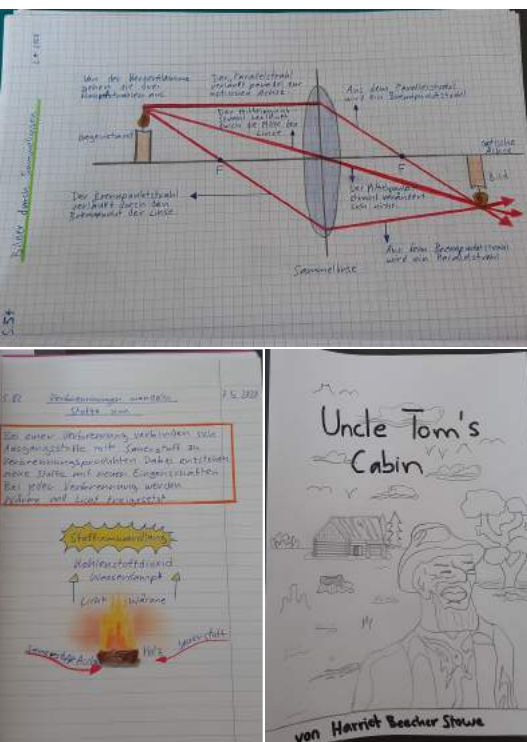 Bilder durch Sammellinsen
Von der Kerzenflamme
gehen die drei
Hauptstrahlen aus.
Der Parallelstrahl
verläuft parallel zur
optischen Achse
Der Mittelpunkt
strahl verläuft
durch die Mitte der
Linse.
Aus dem Parallelstrahl
wird ein Brennpunktstrahl
Gegenstand
optische
Achse
F
F
Bild
Der Brennpunktstrahl
verläuft durch den
Brennpunkt der Linse.
Der Mittelpunkt
strahl verändert
sich nicht.
Aus dem Brennpunktstrahl
wird ein Parallelstrahl
Sammellinse
Verbrennungen wandeln
Stoffe um
Bei einer Verbrennung verbinden sich
Ausgangsstoffe mit Sauerstoff zu
Verbrennungsprodukten Dabei entstehen
neue Stoffe mit neuen Eigenschaften
Bei jeder Verbrennung werden
Wärme und Licht freigesetzt
Stoffumwandlung
Kohlenstoffdioxid
Wasserdampf
Licht Wärme
Holz
Sauerstoff
Uncle Tom's
Cabin
von Harriet Beecher Stowe